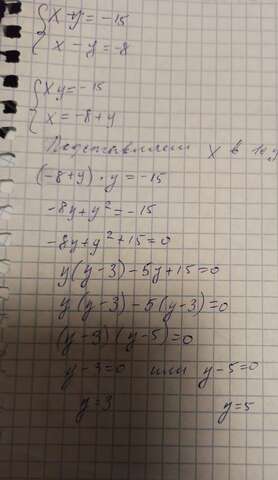 x + y = -15
x - y = -8
xy = -15
x = -8 + y
Подставляем x в 1ое
(-8+y) · y = -15
-8y + y² = -15
-8y + y² + 15 = 0
y(y-3) - 5y + 15 = 0
y(y-3) - 5(y-3) = 0
(y-3)(y-5) = 0
y-3=0 или y-5=0
y=3 y=5